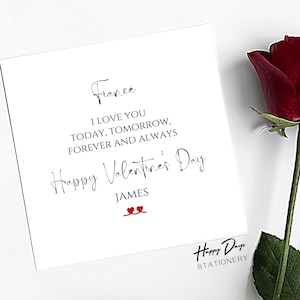 Fiancé
I LOVE YOU
TODAY, TOMORROW,
FOREVER AND ALWAYS
Happy Valentine's Day
JAMES
Happy Days
STATIONERY